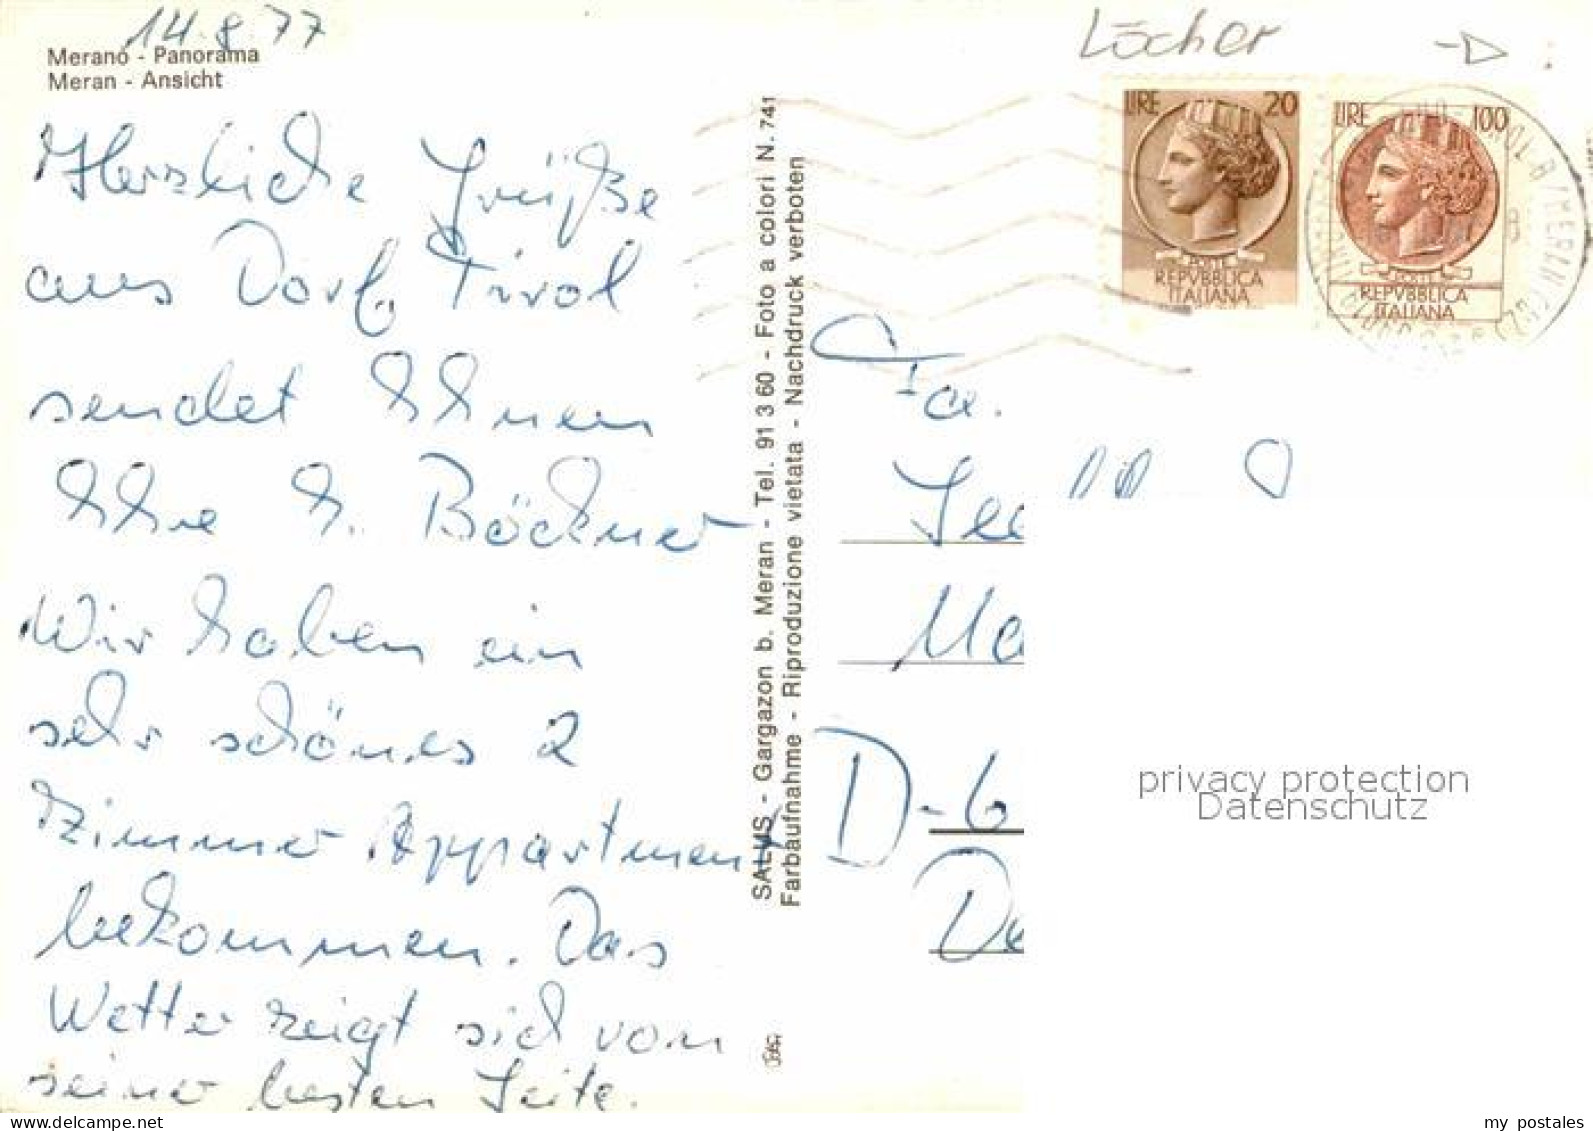 14.8.77
Merano - Panorama
Meran - Ansicht
Herzliche Grüße
aus Dorf Tirol
sendet Ihnen
Ihre H. Böckner
Wir haben ein
sehr schönes 2
Zimmer Appartment
bekommen. Das
Wetter zeigt sich von
seiner besten Seite.
SALUS - Gargazon b. Meran - Tel. 91 3 60 - Foto a colori N. 741
Farbaufnahme - Riproduzione vietata - Nachdruck verboten
Löcher
LIRE 20
POSTE
REPVBBLICA
ITALIANA
LIRE 100
POSTE
REPVBBLICA
ITALIANA
Fa.
D-6
privacy protection
Datenschutz
my postales